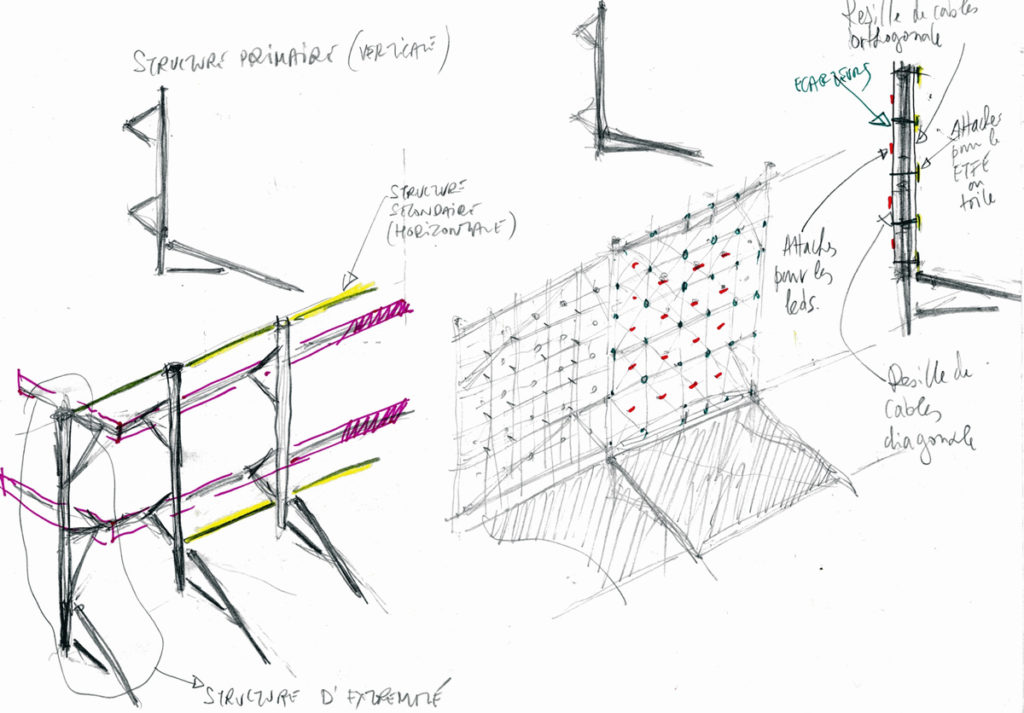 STRUCTURE PRIMAIRE (VERTICALE)
STRUCTURE
SECONDAIRE
(HORIZONTALE)
STRUCTURE D'EXTREMITÉ
Resille de cables
orthogonale
ECARTEURS
Attaches
pour le
ETFE
ou
toile
Attaches
pour les
leds.
Resille de
cables
diagonale